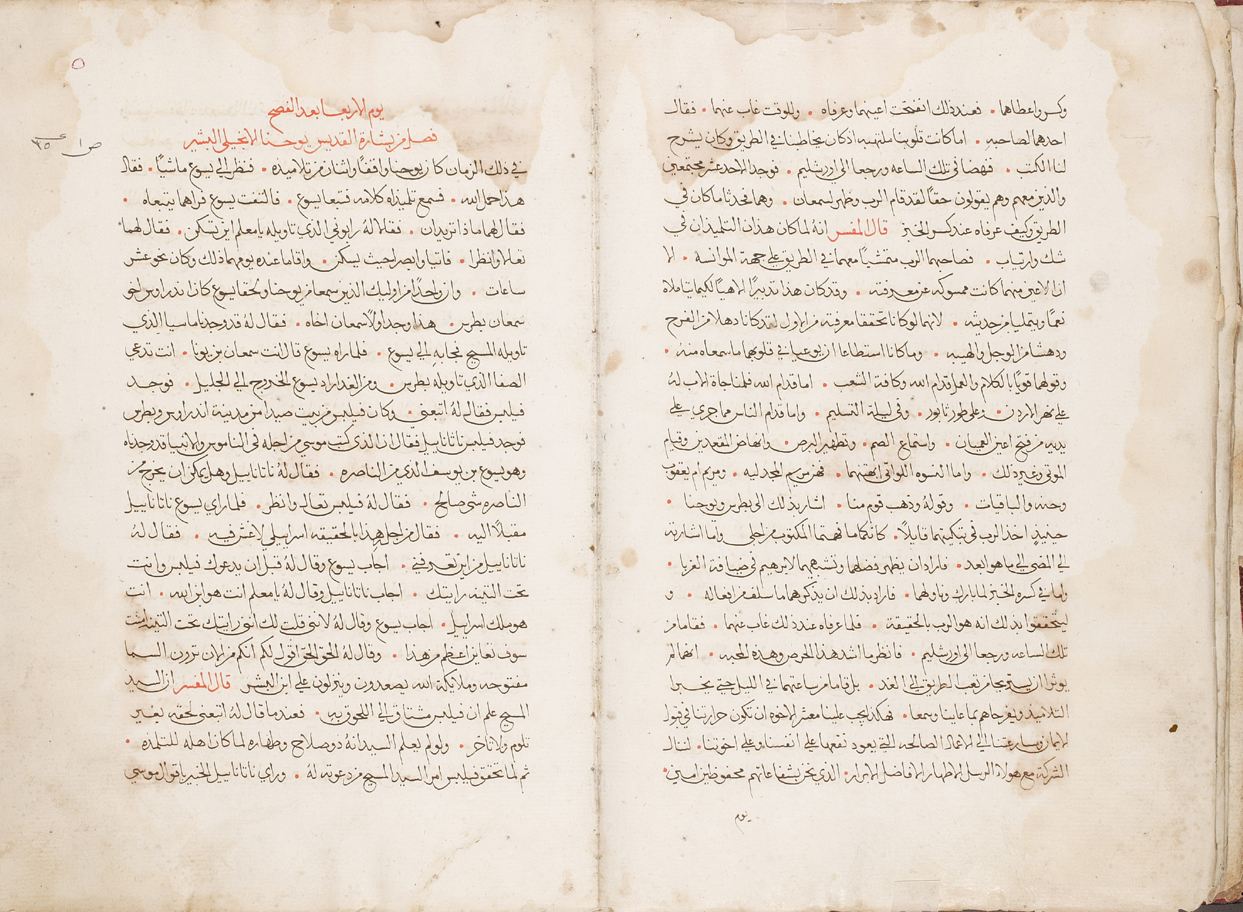 وكسر واعطاهما • فعند ذلك انفتحت اعينهما وعرفاه • وللوقت غاب عنهما • فقال
احدهما لصاحبه • اما كانت قلوبنا ملتهبه اذ كان يخاطبنا في الطريق وكان يشرح
لنا الكتب • فنهضا في تلك الساعه ورجعا الى اورشليم • فوجدا الاحد عشر مجتمعين
والذين معهم وهم يقولون حقًا لقد قام الرب وظهر لسمعان • وهما تحدثا ما كان في
الطريق وكيف عرفاه عند كسر الخبز قال المفسر انهُ لما كان هذان التلميذان في
شك وارتياب • فصاحبهما الرب متمشيًا معهما في الطريق على جهة الموانسة • الا
ان الاعين منهما كانت ممسوكه عن معرفته • وقد كان هذا تدبيرًا الاهيًا لكيما يتملاه
نعمًا ويتمليا من حديثه • لانهما لو كانا تحققا معرفته من الاول لقد كانا ذهلا من الفرح
ودهشا من الوجل والهيبه • وما كانا استطاعا ان يوعيا في قلوبهما ما سمعاه منه •
وقولهما قويًا بالكلام والعمل قدام الله وكافة الشعب • اما قدام الله فلمناجاة الاب لهُ
على نهر الاردن • وعلى طور تابور • وفي ليلة التسليم • واما قدام الناس فما جرى على
يديه من فتح اعين العميان • واستماع الصم • وتطهير البرص • وانهاض المقعدين وقيام
الموتى وغير ذلك • واما النسوه اللواتي ابهتنهما • فهن مريم المجدليه • ومريم ام يعقوب
وحنه والباقيات • وقولهُ وذهب قوم منا • اشار بذلك الى بطرس ويوحنا •
حينيذٍ اخذ الرب في تبكيتهما قايلًا • كانكما ما فهمتما المكتوب من اجلي واما اشارته
الى المضي الى ما هو ابعد • فاراد ان يظهر فضلهما وتشبههما لابرهيم في ضيافة الغربا •
واما في كسره الخبز لما بارك وناولهما • فاراد بذلك ان يذكرهما ما سلف من افعاله • و
ليتحققوا بذلك انه هو الرب بالحقيقة • فلما عرفاه عند ذلك غاب عنهما • فقاما من
تلك الساعه ورجعا الى اورشليم • فانظروا ما اشد هذا الحرص وهذه المحبه • انهما لم
يوثرا ان يستريحا من تعب الطريق الى الغد • بل قاما من ساعتهما في الليل حتى يخبرا
التلاميذ ويفرحاهم بما عاينا وسمعا • فهكذا يجب علينا معشر الاخوه ان تكون حرارتنا في قبول
الايمان ومسارعتنا الى الاعمال الصالحه التي يعود نفعها على انفسنا وعلى اخوتنا • لننال
الشركة مع هولاء الرسل الاطهار الافاضل الابرار • الذي نحن بشفاعاتهم محفوظين امين •
يوم
يوم الاربعا بعد الفصح
فصل من بشارة القديس يوحنا الانجيلي البشير
ص ١ ٣٥
في ذلك الزمان كان يوحنا واقفًا واثنان من تلاميذه • فنظر الى يسوع ماشيًا • فقال
هذا حمل الله • فسمع تلميذاه كلامه فتبعا يسوع • فالتفت يسوع فراهما يتبعاه •
فقال لهما ماذا تريدان • فقالا لهُ رابوني الذي تاويله يا معلم اين تسكن • فقال لهما
تعاليا وانظرا • فاتيا وابصرا حيث يسكن • واقاما عنده يومهما ذلك وكان نحو عشر
ساعات • وان واحدًا من اوليك الذين سمعا من يوحنا ولحقا يسوع كان اندراوس اخو
سمعان بطرس • هذا وجد اولًا سمعان اخاه • فقال لهُ قد وجدنا ماسيا الذي
تاويله المسيح فجا به الى يسوع • فلما راه يسوع قال انت سمعان بن يونا • انت تدعى
الصفا الذي تاويلهُ بطرس • ومن الغد اراد يسوع الخروج الى الجليل • فوجد
فيلبس فقال لهُ اتبعني • وكان فيلبس من بيت صيدا من مدينة اندراوس وبطرس
فوجد فيلبس ناتاناييل فقال ان الذي كتب موسى من اجله في الناموس والانبيا قد وجدناه
وهو يسوع بن يوسف الذي من الناصره • فقال لهُ ناتاناييل وهل يمكن ان يخرج من
الناصره شي صالح • فقال لهُ فيلبس تعال وانظر • فلما راى يسوع ناتاناييل
مقبلًا اليه • فقال من اجله هذا بالحقيقه اسراييلي لا غش فيه • فقال لهُ
ناتاناييل من اين تعرفني • اجاب يسوع وقال لهُ قبل ان يدعوك فيلبس وانت
تحت التينه رايتك • اجاب ناتاناييل وقال لهُ يا معلم انت هو ابن الله • انت
هو ملك اسراييل • اجاب يسوع وقال لهُ لانني قلت لك انني رايتك تحت التينه امنت
سوف تعاين اعظم من هذا • وقال لهُ الحق الحق اقول لكم انكم من الان ترون السما
مفتوحه وملايكة الله يصعدون وينزلون على ابن البشر قال المفسر ان السيد
المسيح علم ان فيلبس مشتاق الى اللحوق به • فعندما قال لهُ اتبعني لحقه بغير
تلوم ولا تاخر • ولو لم يعلم السيد انهُ ذو صلاح وطهاره لما كان اهله للتلمذه •
ثم لما تحقق فيلبس امر السيد المسيح من دعوته لهُ • وراى ناتاناييل الخبير باقوال موسى